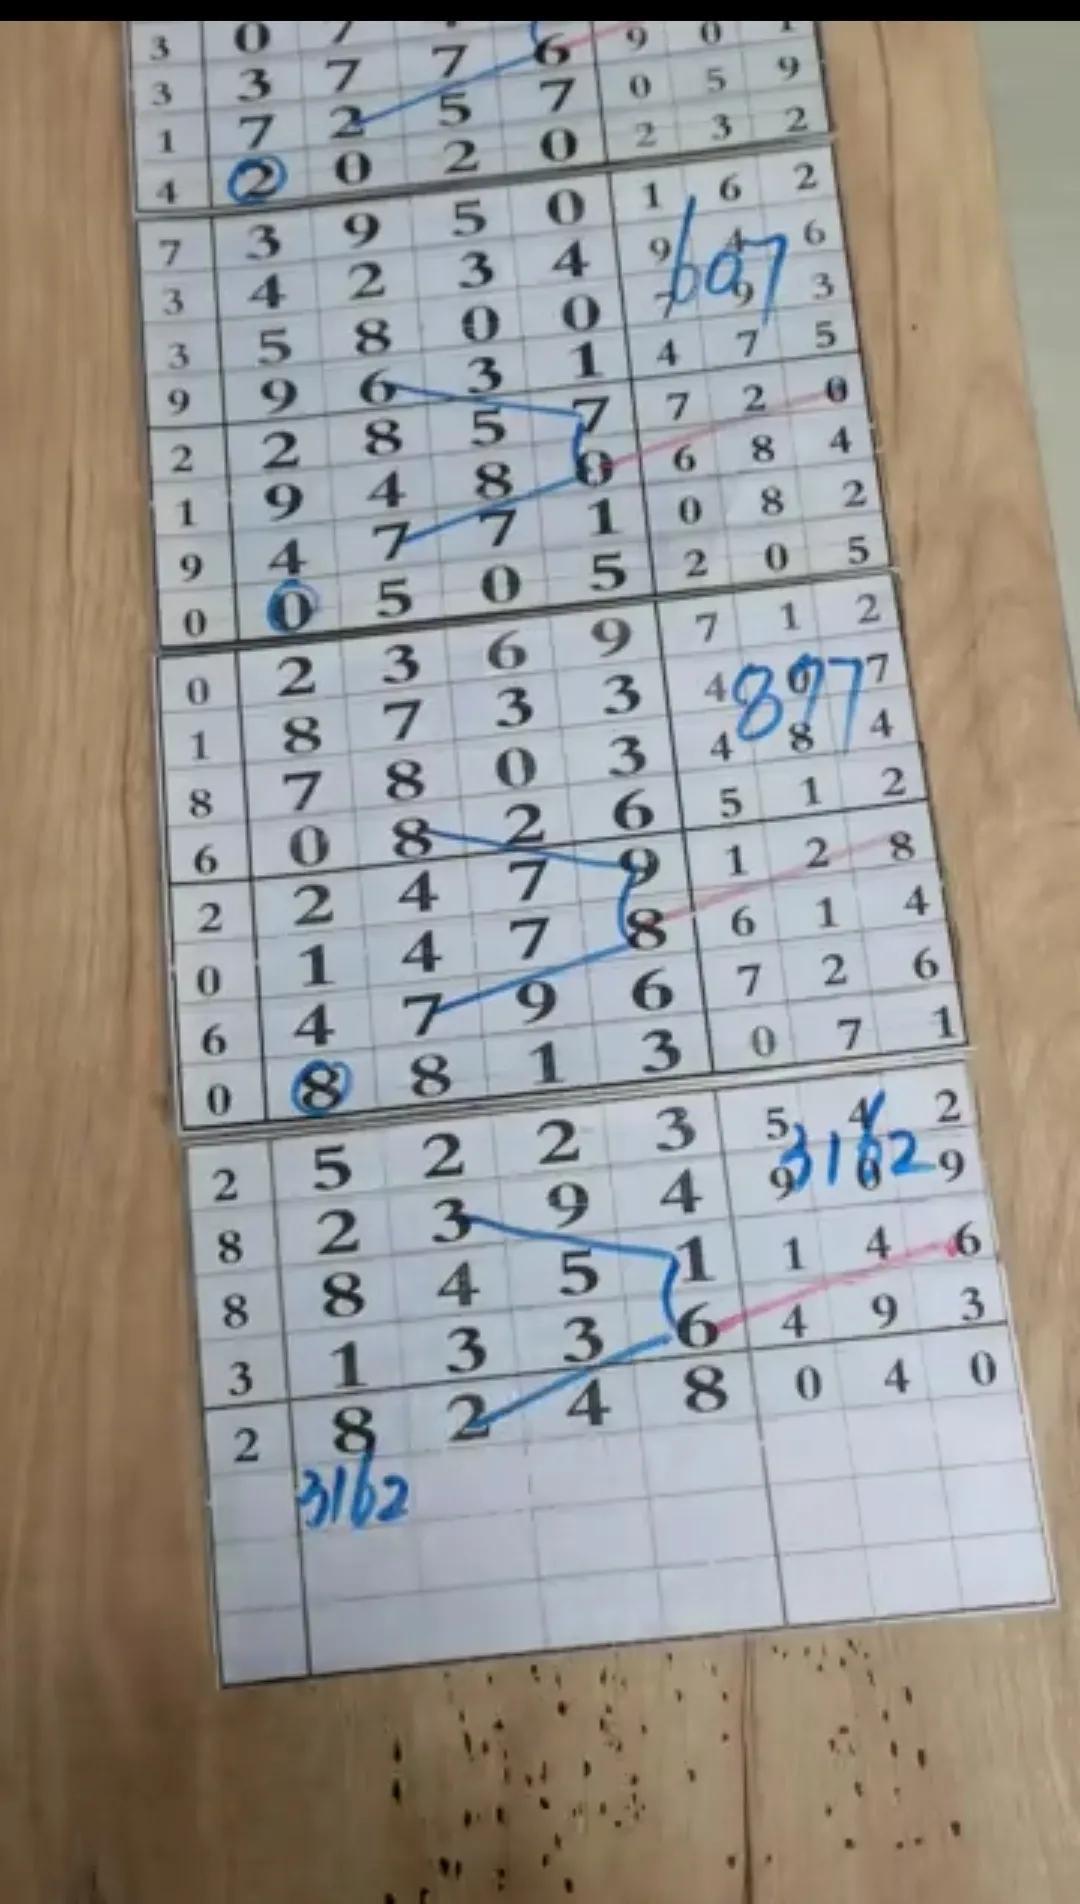 3 0 7 9 0
3 3 7 7 6 0 5 9
1 7 2 5 7 2 3 2
4 2 0 2 0
7 3 9 5 0 1 6 2
3 4 2 3 4 9 4 6
607
3 5 8 0 0 7 9 3
9 9 6 3 1 4 7 5
2 2 8 5 7 7 2 0
1 9 4 8 0 6 8 4
9 4 7 7 1 0 8 2
0 0 5 0 5 2 0 5
0 2 3 6 9 7 1 2
1 8 7 3 3 4 0 7
897
8 7 8 0 3 4 8 4
6 0 8 2 6 5 1 2
2 2 4 7 9 1 2 8
0 1 4 7 8 6 1 4
6 4 7 9 6 7 2 6
0 8 8 1 3 0 7 1
2 5 2 2 3 5 4 2
3162
8 2 3 9 4 9 0 9
8 8 4 5 1 1 4 6
3 1 3 3 6 4 9 3
2 8 2 4 8 0 4 0
3162